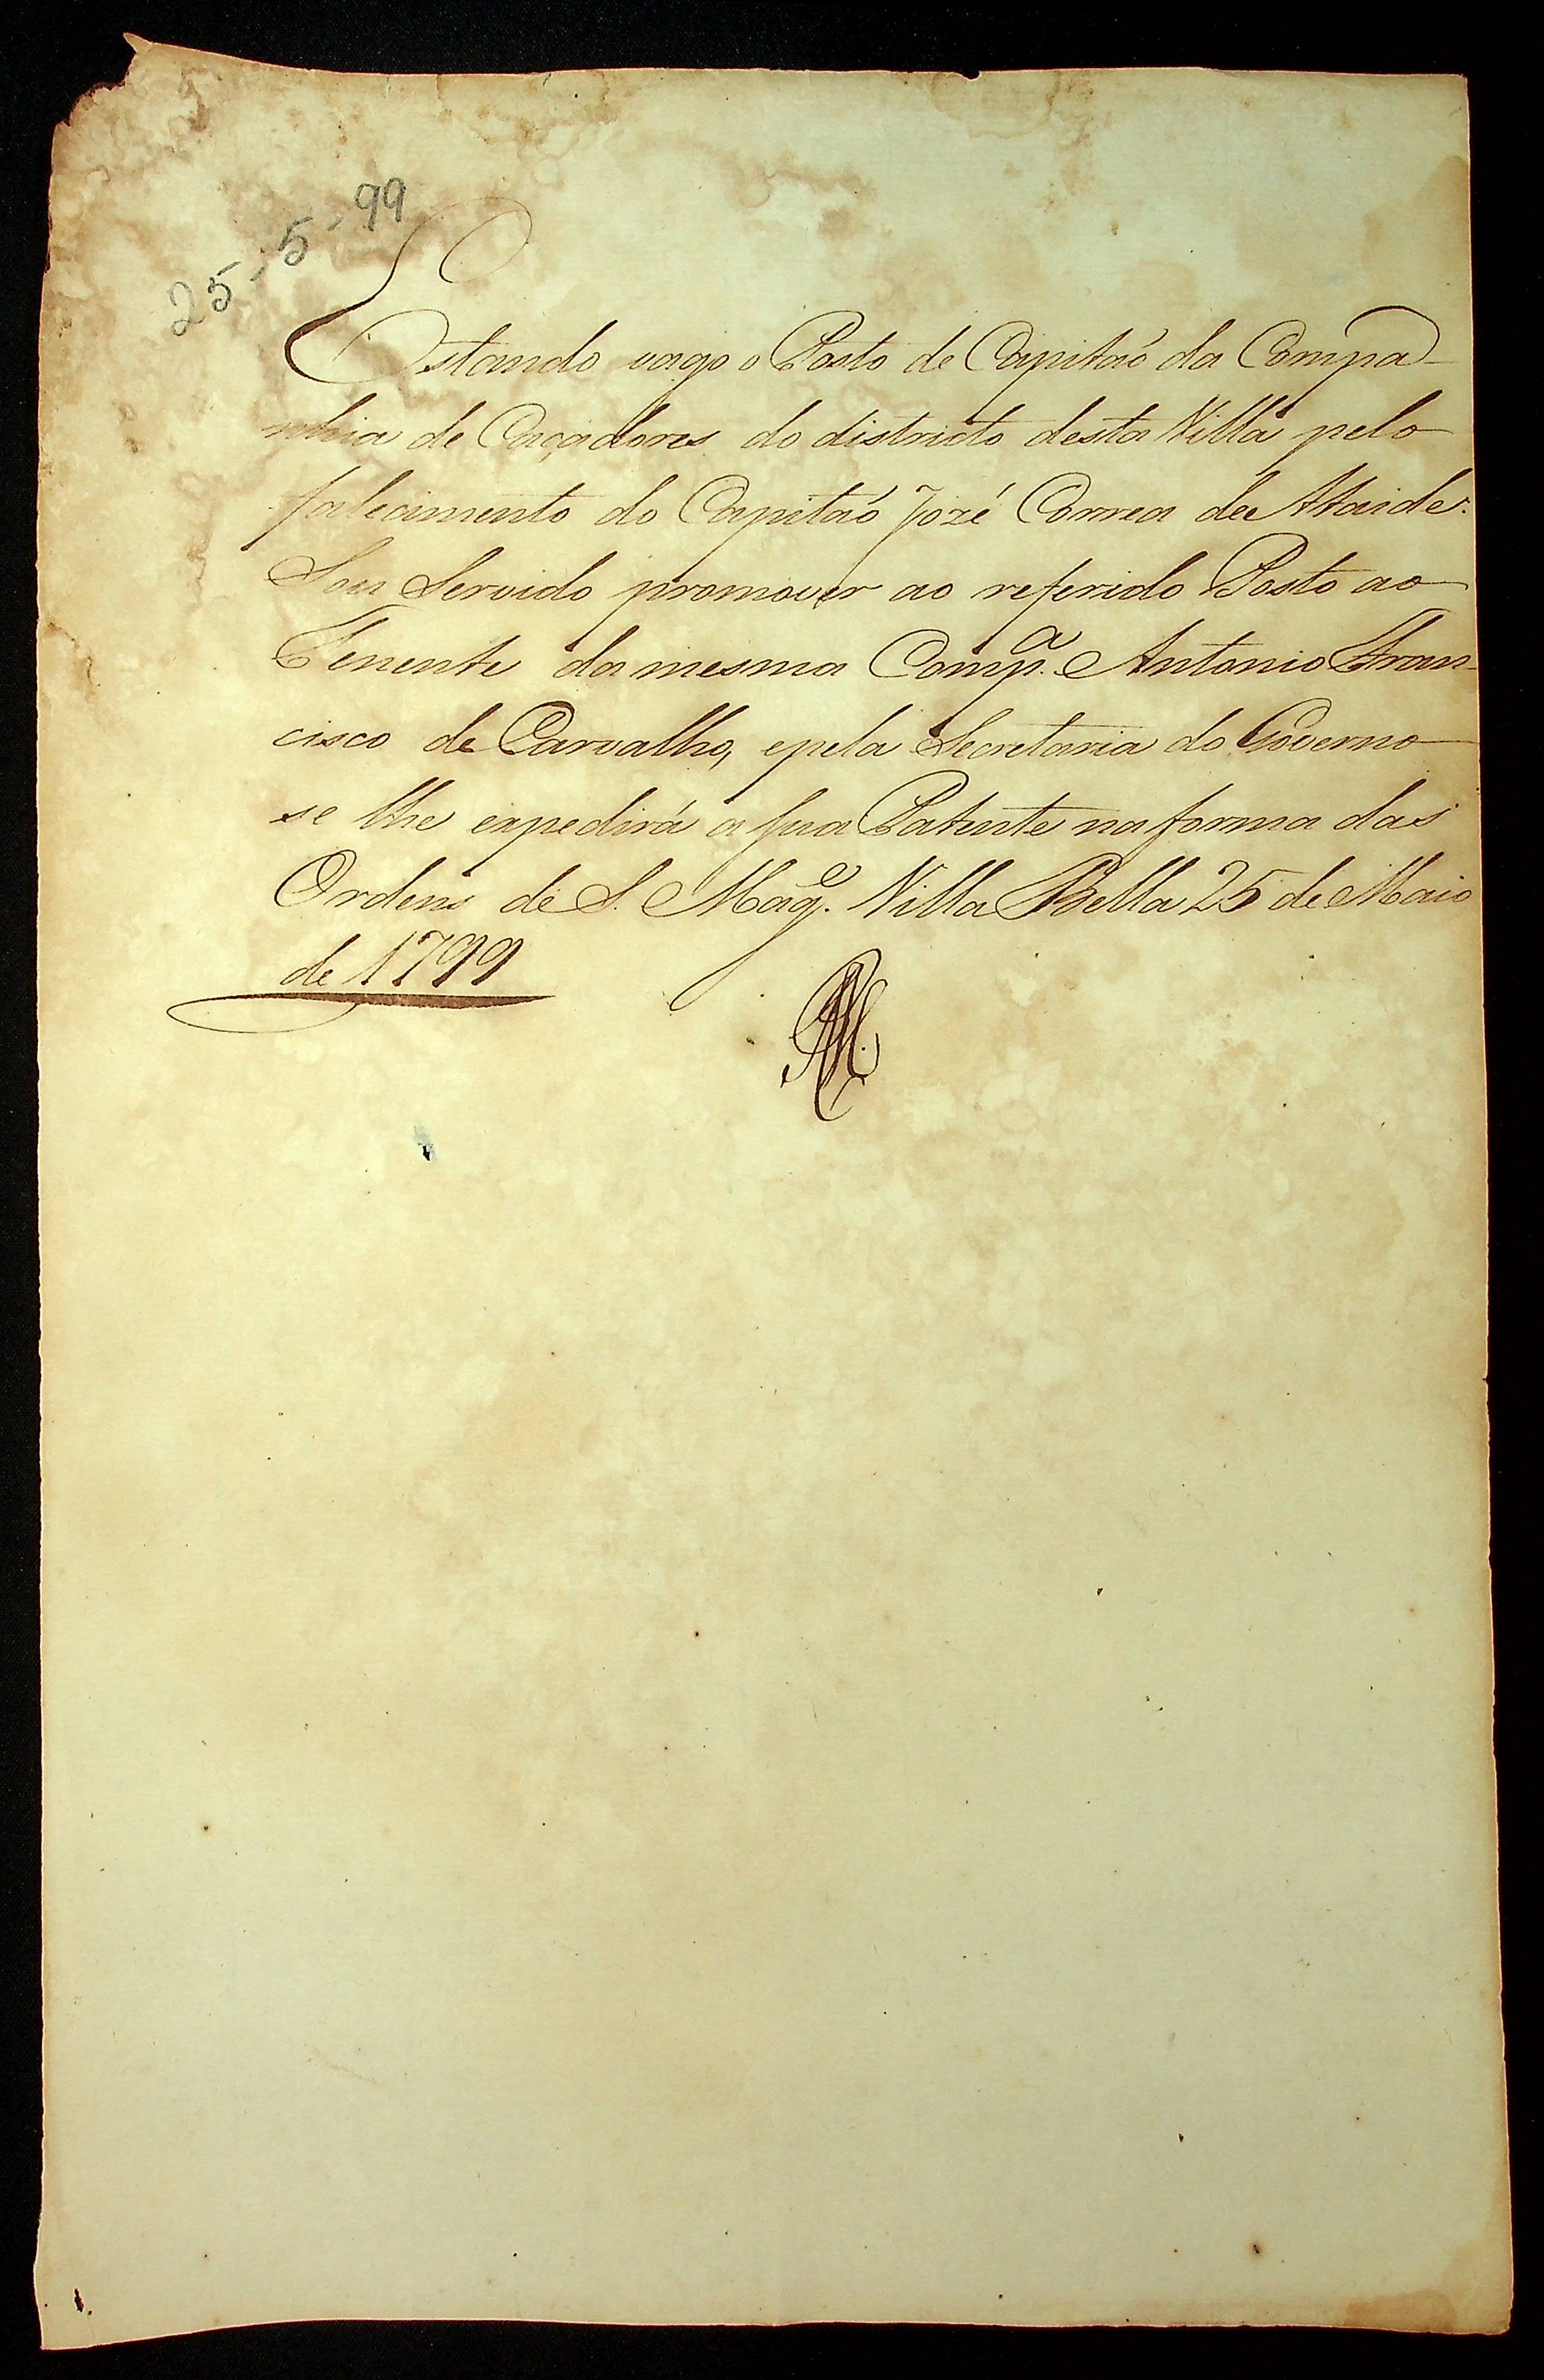 25-5-99
Estando vago o Posto de Capitaõ da Compa-
nhia de Caçadores do districto desta Villa pelo
falecimento do Capitaõ Jozé Correa de Ataide.
Sou Servido promover ao referido Posto ao
Tenente da mesma Comp.ª Antonio Fran-
cisco de Carvalho, epela Secretaria do Governo
se lhe expedirá a sua Patente na forma das
Ordens de S. Mag.e Villa Bella 25 de Maio
de 1799